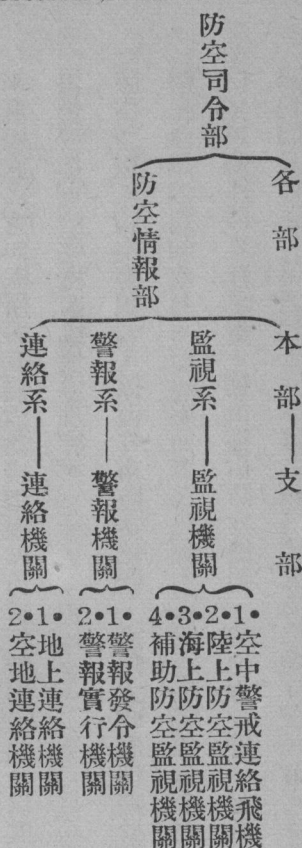 防空司令部
各部
防空情報部
本部——支部
監視系——監視機關
1•空中警戒連絡飛機
2•陸上防空監視機關
3•海上防空監視機關
4•補助防空監視機關
警報系——警報機關
1•警報發令機關
2•警報實行機關
連絡系——連絡機關
1•地上連絡機關
2•空地連絡機關